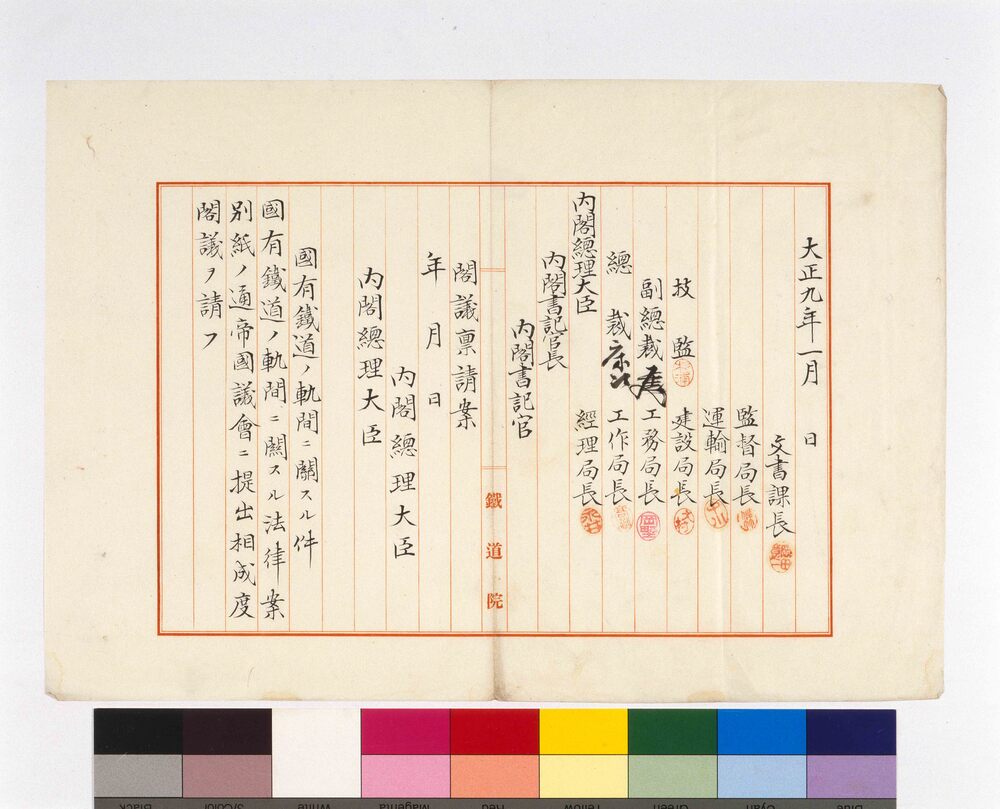 大正九年一月　日
文書課長
監督局長
運輸局長
技監　建設局長
副總裁　工務局長
總裁　工作局長
内閣總理大臣　經理局長
内閣書記官長
内閣書記官
鐵道院
閣議禀請案
年　月　日
内閣總理大臣
内閣總理大臣
國有鐵道ノ軌間ニ關スル件
國有鐵道ノ軌間ニ關スル法律案
別紙ノ通帝國議會ニ提出相成度
閣議ヲ請フ
Black
3/Color
White
Magenta
Red
Yellow
Green
Cyan
Blue